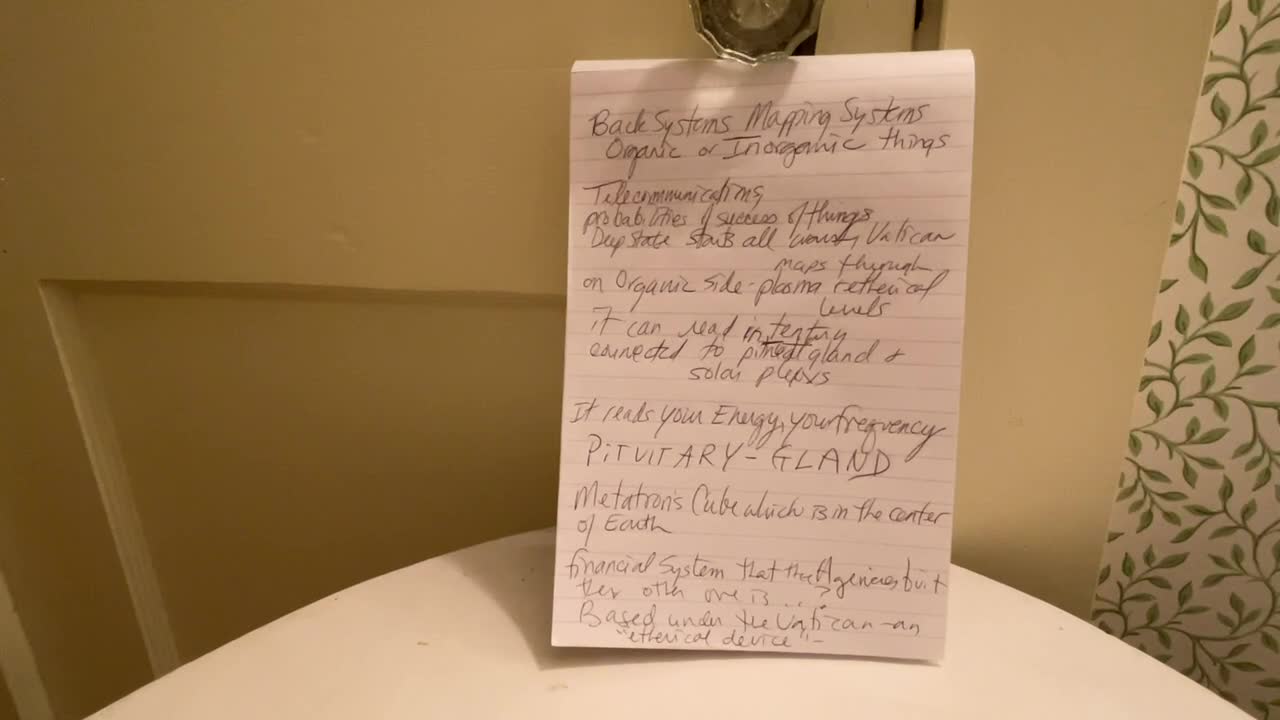 Back Systems Mapping Systems
Organic or Inorganic things
Telecommunications
probabilities of success of things
Deep state starts all Vatican
maps through
on Organic side - plasma etherical
levels
it can read in
connected to gland +
solar plexus
It reads your Energy, your frequency
PiTUITARY - GLAND
Metatron's Cube which is in the center
of Earth
financial System that the Agencies built
other one is...?
Based under the Vatican - an
"etherical device" -